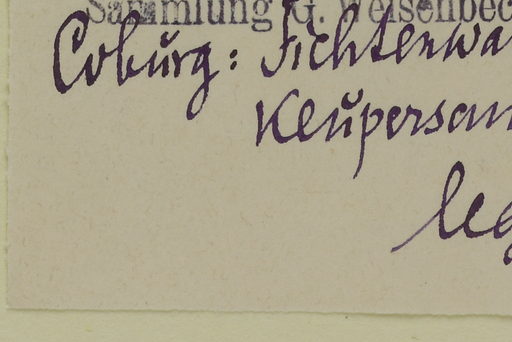 Sammlung G. Weisenbec
Coburg: Fichtenwa
Keupersan
leg